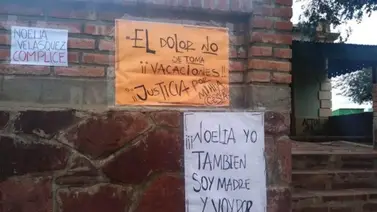 NOELIA
VELASQUEZ
COMPLICE
-EL DOLOR NO
SE TOMA
¡¡VACACIONES!!
¡JUSTICIA POR
¡¡¡NOELIA YO
TAMBIEN
SOY MADRE
Y VOY POR